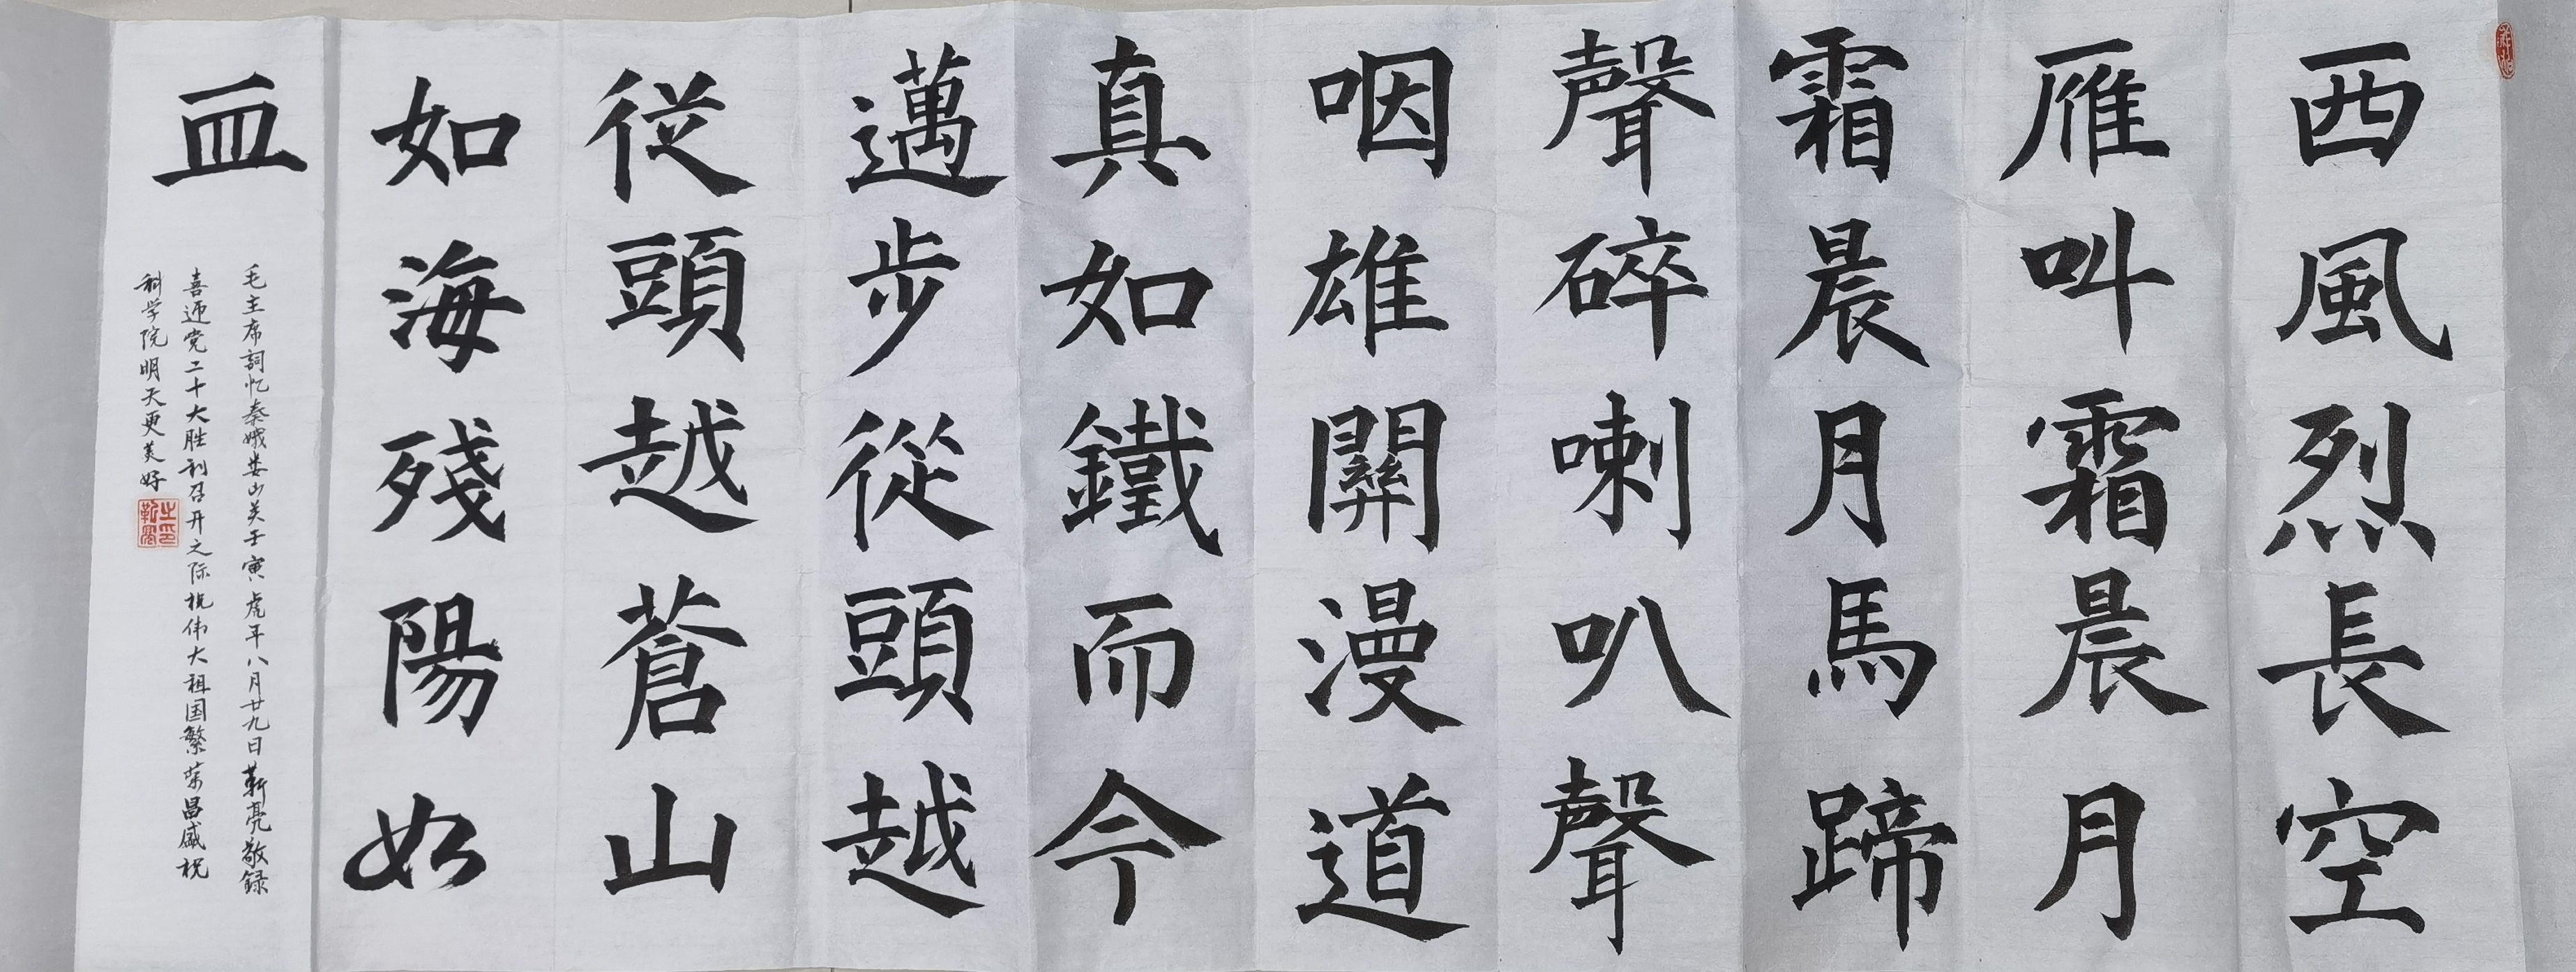 西風烈長空
雁叫霜晨月
霜晨月馬蹄
聲碎喇叭聲
咽雄關漫道
真如鐵而今
邁步從頭越
從頭越蒼山
如海殘陽如
血
毛主席詞忆秦娥娄山关壬寅虎年八月廿九日靳亮敬録
喜迎党二十大胜利召开之际祝伟大祖国繁荣昌盛祝
科学院明天更美好